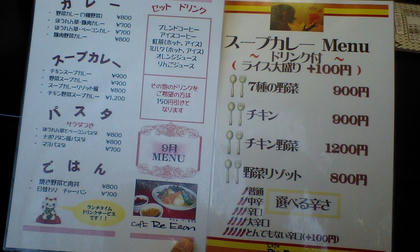 カレー
野菜カレー(7種野菜) ¥800
ほうれん草・豚肉カレー ¥700
ほうれん草・ベーコンカレー ¥700
豚肉野菜カレー ¥800
スープカレー
チキンスープカレー ¥900
野菜スープカレー ¥900
スープカレーリゾット風 ¥800
チキン野菜スープカレー ¥1,200
パスタ
サラダつき
ほうれん草とベーコンパスタ ¥800
ナポリタン風パスタ ¥700
ツナパスタ ¥700
ごはん
焼き野菜と肉丼 ¥800
日替わり チャーハン ¥700
ランチタイム
ドリンクサービス
です！！
セット ドリンク
ブレンドコーヒー
アイスコーヒー
紅茶(ホット、アイス)
ミルク(ホット、アイス)
オレンジジュース
りんごジュース
その他のドリンクを
ご希望の方は
150円引きと
なります
9月
MENU
Cafe Re Leon
スープカレー Menu
～ ドリンク付 ～
( ライス大盛り +100円 )
7種の野菜 900円
チキン 900円
チキン野菜 1200円
野菜リゾット 800円
普通
中辛
辛口
大辛口
とんでもない辛口(+100円)
選べる辛さ